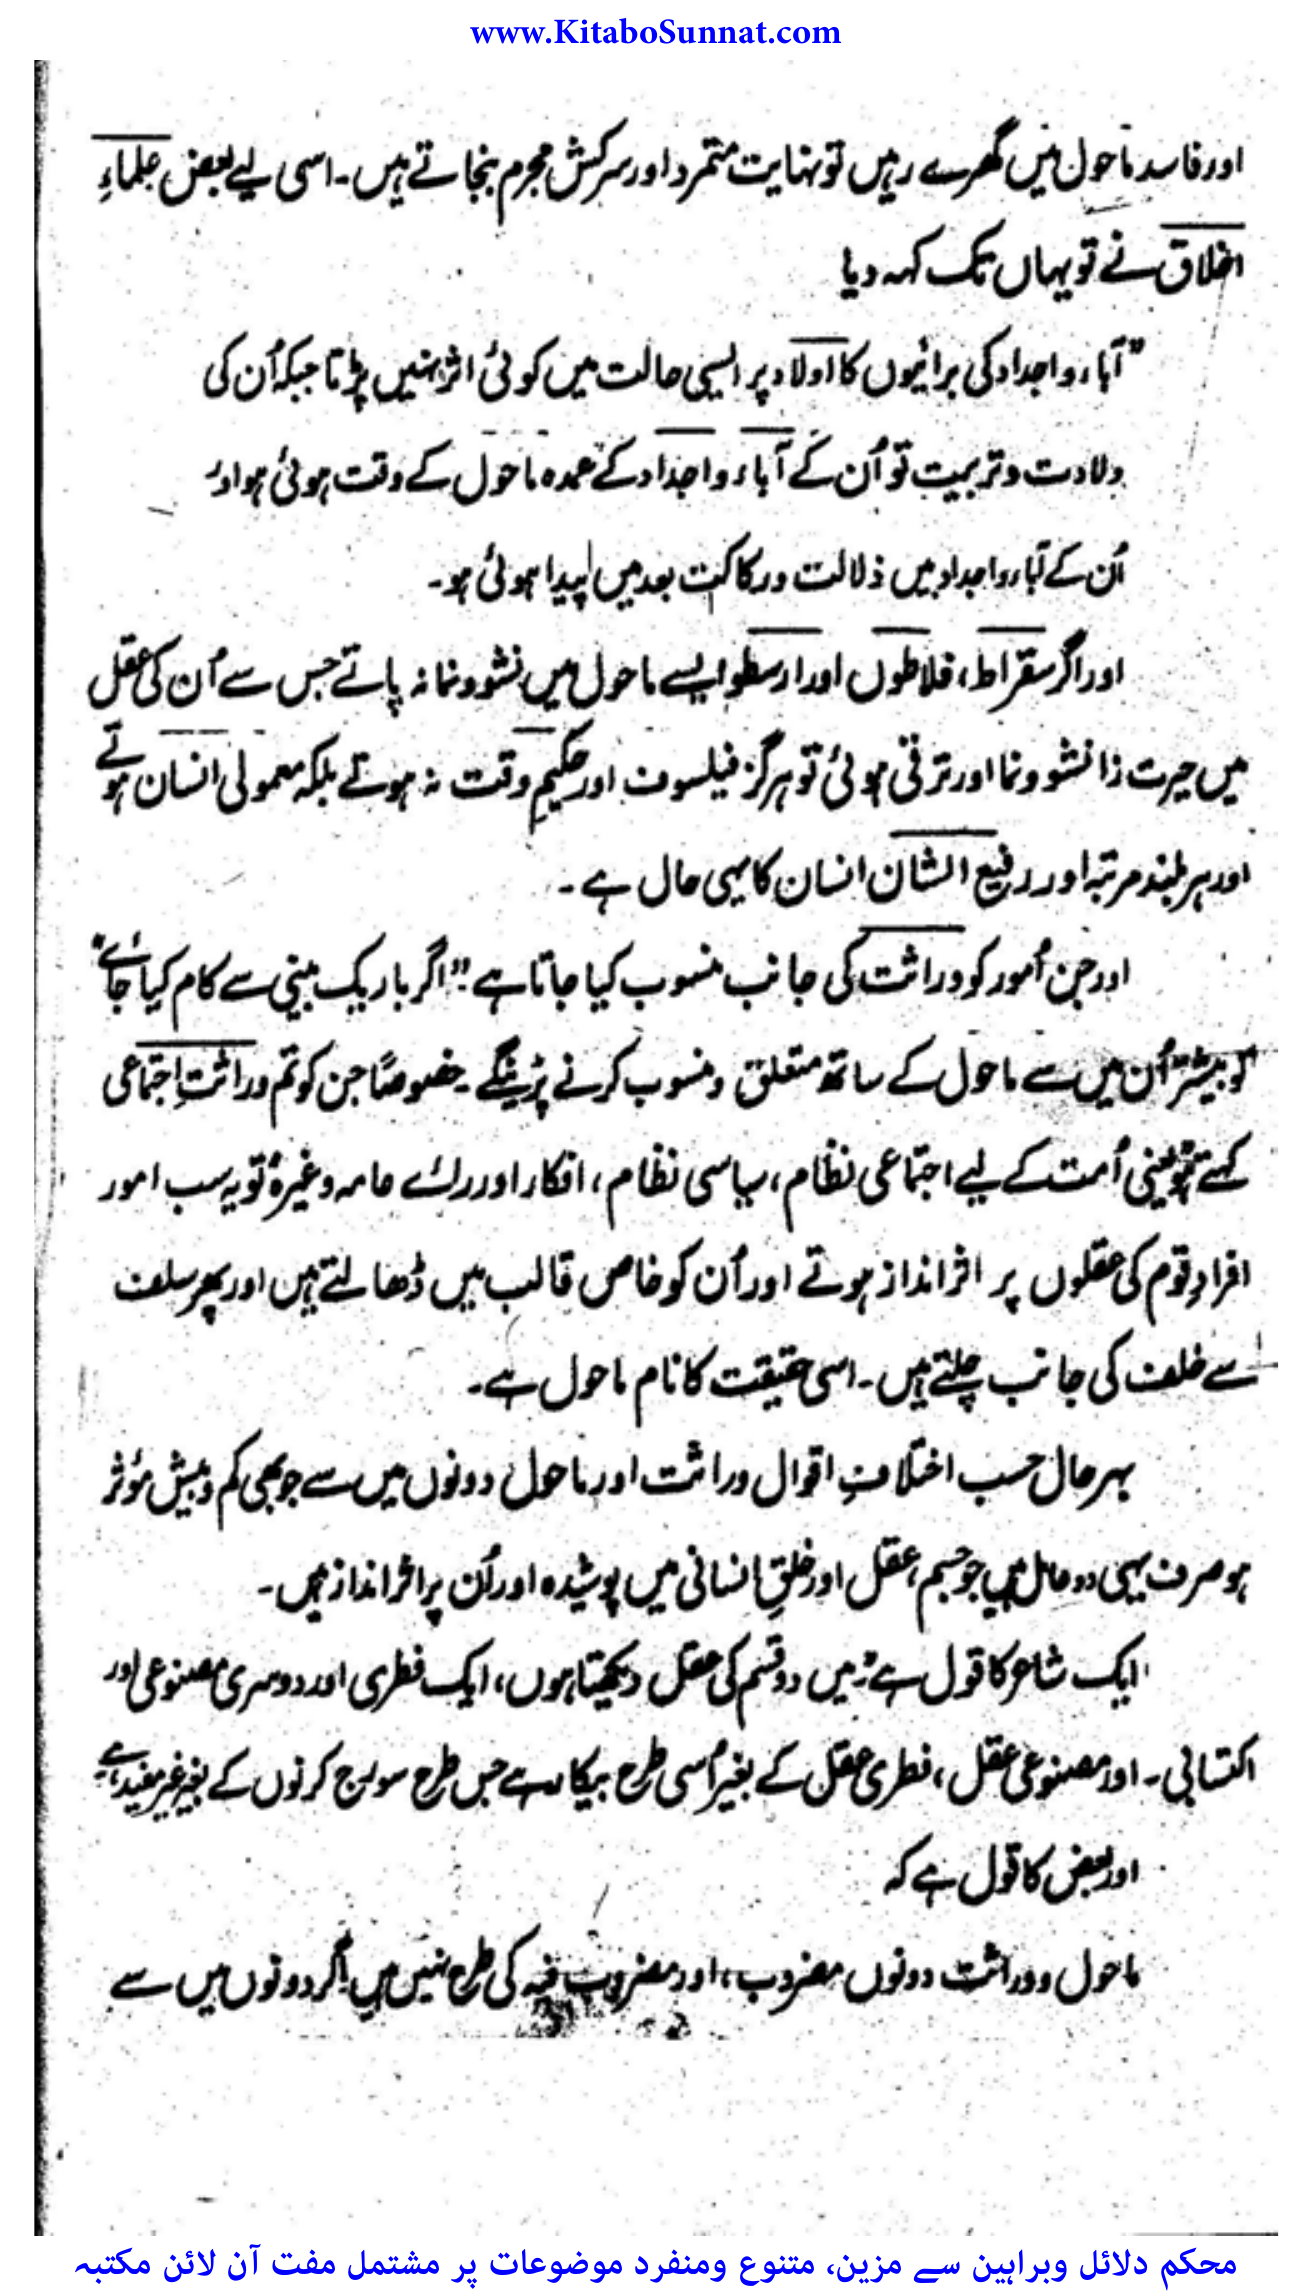 www.KitaboSunnat.com
اور فاسد ماحول میں گھرے رہیں تو نہایت متمرد اور سرکش مجرم بنجاتے ہیں۔ اسی لیے بعض علماءِ
اخلاق نے تو یہاں تک کہہ دیا
"آباء و اجداد کی برائیوں کا اولاد پر ایسی حالت میں کوئی اثر نہیں پڑتا جبکہ اُن کی
ولادت و تربیت تو اُن کے آباء و اجداد کے عمدہ ماحول کے وقت ہوئی ہو اور
اُن کے آباء و اجداد میں ذلالت و رکاکت بعد میں پیدا ہوئی ہو۔
اور اگر سقراط، فلاطوں اور ارسطو ایسے ماحول میں نشوونما نہ پاتے جس سے اُن کی عقل
میں حیرت زا نشوونما اور ترقی ہوئی تو ہرگز فیلسوف اور حکیمِ وقت نہ ہوتے بلکہ معمولی انسان ہوتے
اور ہر بلند مرتبہ اور رفیع الشان انسان کا یہی حال ہے۔
اور جن اُمور کو وراثت کی جانب منسوب کیا جاتا ہے "اگر باریک بینی سے کام کیا جائے"
تو بیشتر اُن میں سے ماحول کے ساتھ متعلق و منسوب کرنے پڑینگے۔ خصوصًا جن کو تم وراثتِ اجتماعی
کہتے ہو یعنی اُمت کے لیے اجتماعی نظام، سیاسی نظام، افکار اور رائے عامہ وغیرہ تو یہ سب امور
افرادِ قوم کی عقلوں پر اثر انداز ہوتے اور اُن کو خاص قالب میں ڈھالتے ہیں اور پھر سلف
سے خلف کی جانب چلتے ہیں۔ اسی حقیقت کا نام ماحول ہے۔
بہرحال حسب اختلافِ اقوال وراثت اور ماحول دونوں میں سے جو بھی کم و بیش مؤثر
ہو صرف یہی دو عامل ہیں جو جسم، عقل اور خلقِ انسانی میں پوشیدہ اور اُن پر اثر انداز ہیں۔
ایک شاعر کا قول ہے "میں دو قسم کی عقل دیکھتا ہوں، ایک فطری اور دوسری مصنوعی اور
اکتسابی۔ اور مصنوعی عقل، فطری عقل کے بغیر اُسی طرح بیکار ہے جس طرح سورج کرنوں کے بغیر غیر مفید ہے"
اور بعض کا قول ہے کہ
ماحول و وراثت دونوں مضروب، اور مضروب فیہ کی طرح نہیں ہیں اگر دونوں میں سے
محکم دلائل وبراہین سے مزین، متنوع ومنفرد موضوعات پر مشتمل مفت آن لائن مکتبہ